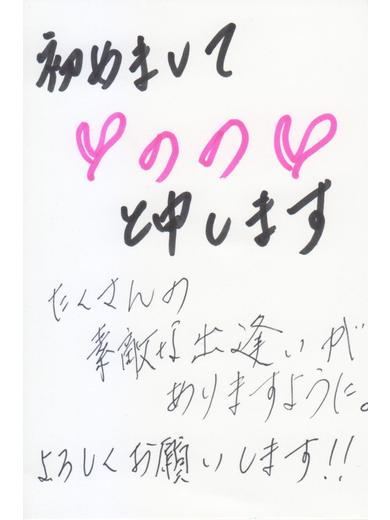 初めまして
♡のの♡
と申します
たくさんの
素敵な出逢いが
ありますように。
よろしくお願いします!!